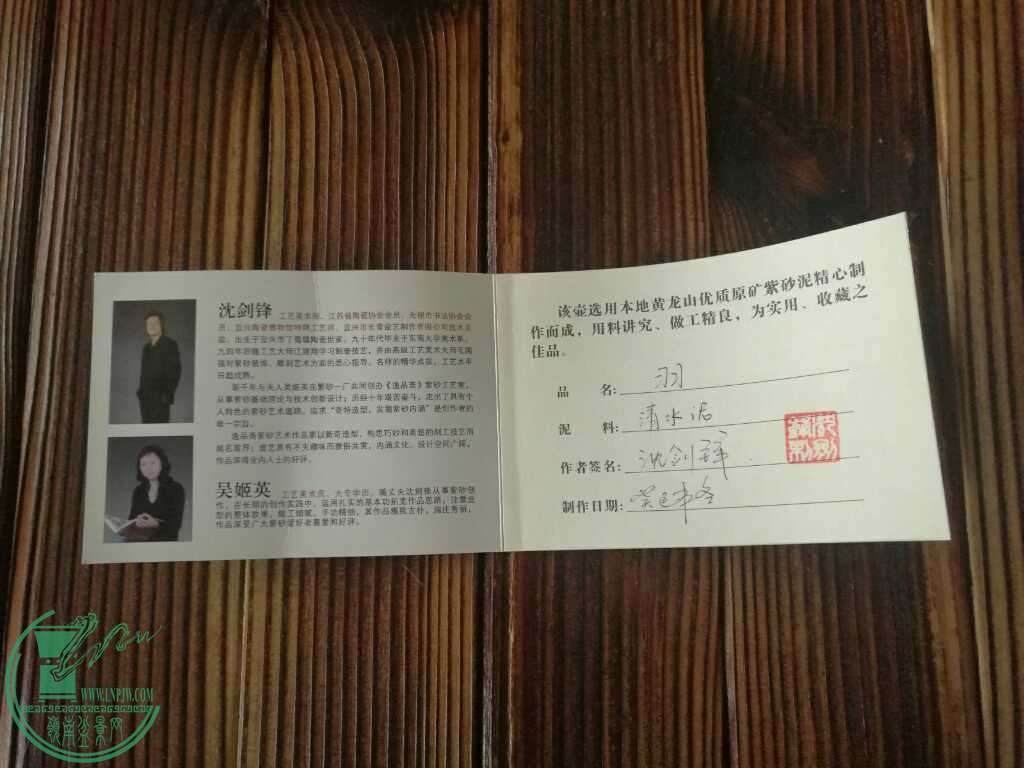 沈剑锋 工艺美术师、江苏省陶瓷协会会员、无锡市书法协会会
员、宜兴陶瓷博物馆特聘工艺师、宜兴市长青瓷艺制作有限公司技术总
监。出生于宜兴市丁蜀镇陶瓷世家，九十年代毕业于东南大学美术系。
九四年后随工艺大师江建翔学习制壶技艺，并由高级工艺美术大师毛国
强对紫砂装饰、雕刻艺术方面的悉心指导，名师的精华点拨，工艺水平
日趋成熟。
新千年与夫人吴姬英在紫砂一厂共同创办《逸品斋》紫砂工艺室，
从事紫砂基础理论与技术创新设计；历经十年艰苦奋斗，走出了具有个
人特色的紫砂艺术道路。追求“奇特造型，发掘紫砂内涵”是创作者的
唯一宗旨。
逸品斋紫砂艺术作品素以新奇造型、构思巧妙和高超的制工技艺而
闻名案界；壶艺具有不失趣味而意俗共赏，内涵文化、设计空间广阔，
作品深得业内人士的好评。
吴姬英 工艺美术员，大专学历，随丈夫沈剑锋从事紫砂创
作，在长期的创作实践中，运用扎实的基本功拓宽作品思路，注重造
型的整体效果，做工细腻，手功精细，其作品雅致古朴，端庄秀丽，
作品深受广大紫砂爱好者喜爱和好评。
该壶选用本地黄龙山优质原矿紫砂泥精心制
作而成，用料讲究、做工精良，为实用、收藏之
佳品。
品 名：羽
泥 料：清水泥
作者签名：沈剑锋
制作日期：癸巳年冬
WWW.LNPJW.COM
岭南盆景网